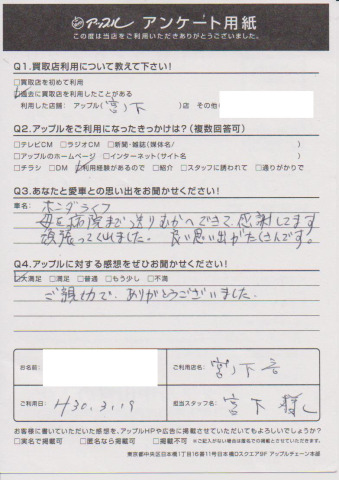 アップル アンケート用紙
この度は当店をご利用いただきありがとうございました。
Q1.買取店利用について教えて下さい!
□買取店を初めて利用
□過去に買取店を利用したことがある
利用した店舗: アップル(宮ノ下)店 その他
Q2.アップルをご利用になったきっかけは?(複数回答可)
□テレビCM □ラジオCM □新聞・雑誌(媒体名/ )
□アップルのホームページ □インターネット(サイト名 )
□チラシ □DM □利用経験があるので □紹介 □スタッフに誘われて □通りがかりで
Q3.あなたと愛車との思い出をお聞かせください!
車名: ホンダライフ
母を病院まで送りむかへできて、感謝してます
頑張ってくれました。 良い思い出がたくさんです。
Q4.アップルに対する感想をぜひお聞かせください!
□大満足 □満足 □普通 □もう少し □不満
ご親切で、ありがとうございました。
お名前:
ご利用店名: 宮ノ下店
ご利用日: H30.3.19
担当スタッフ名: 宮下 様
お客様に書いていただいた感想を、アップルHPや広告に掲載させていただいてもよろしいでしょうか?
□実名で掲載可 □匿名なら掲載可 □掲載不可 ※ご記入がない場合は匿名での掲載とさせていただきます。
東京都中央区日本橋1丁目16番11号日本橋Dスクエア9F アップルチェーン本部